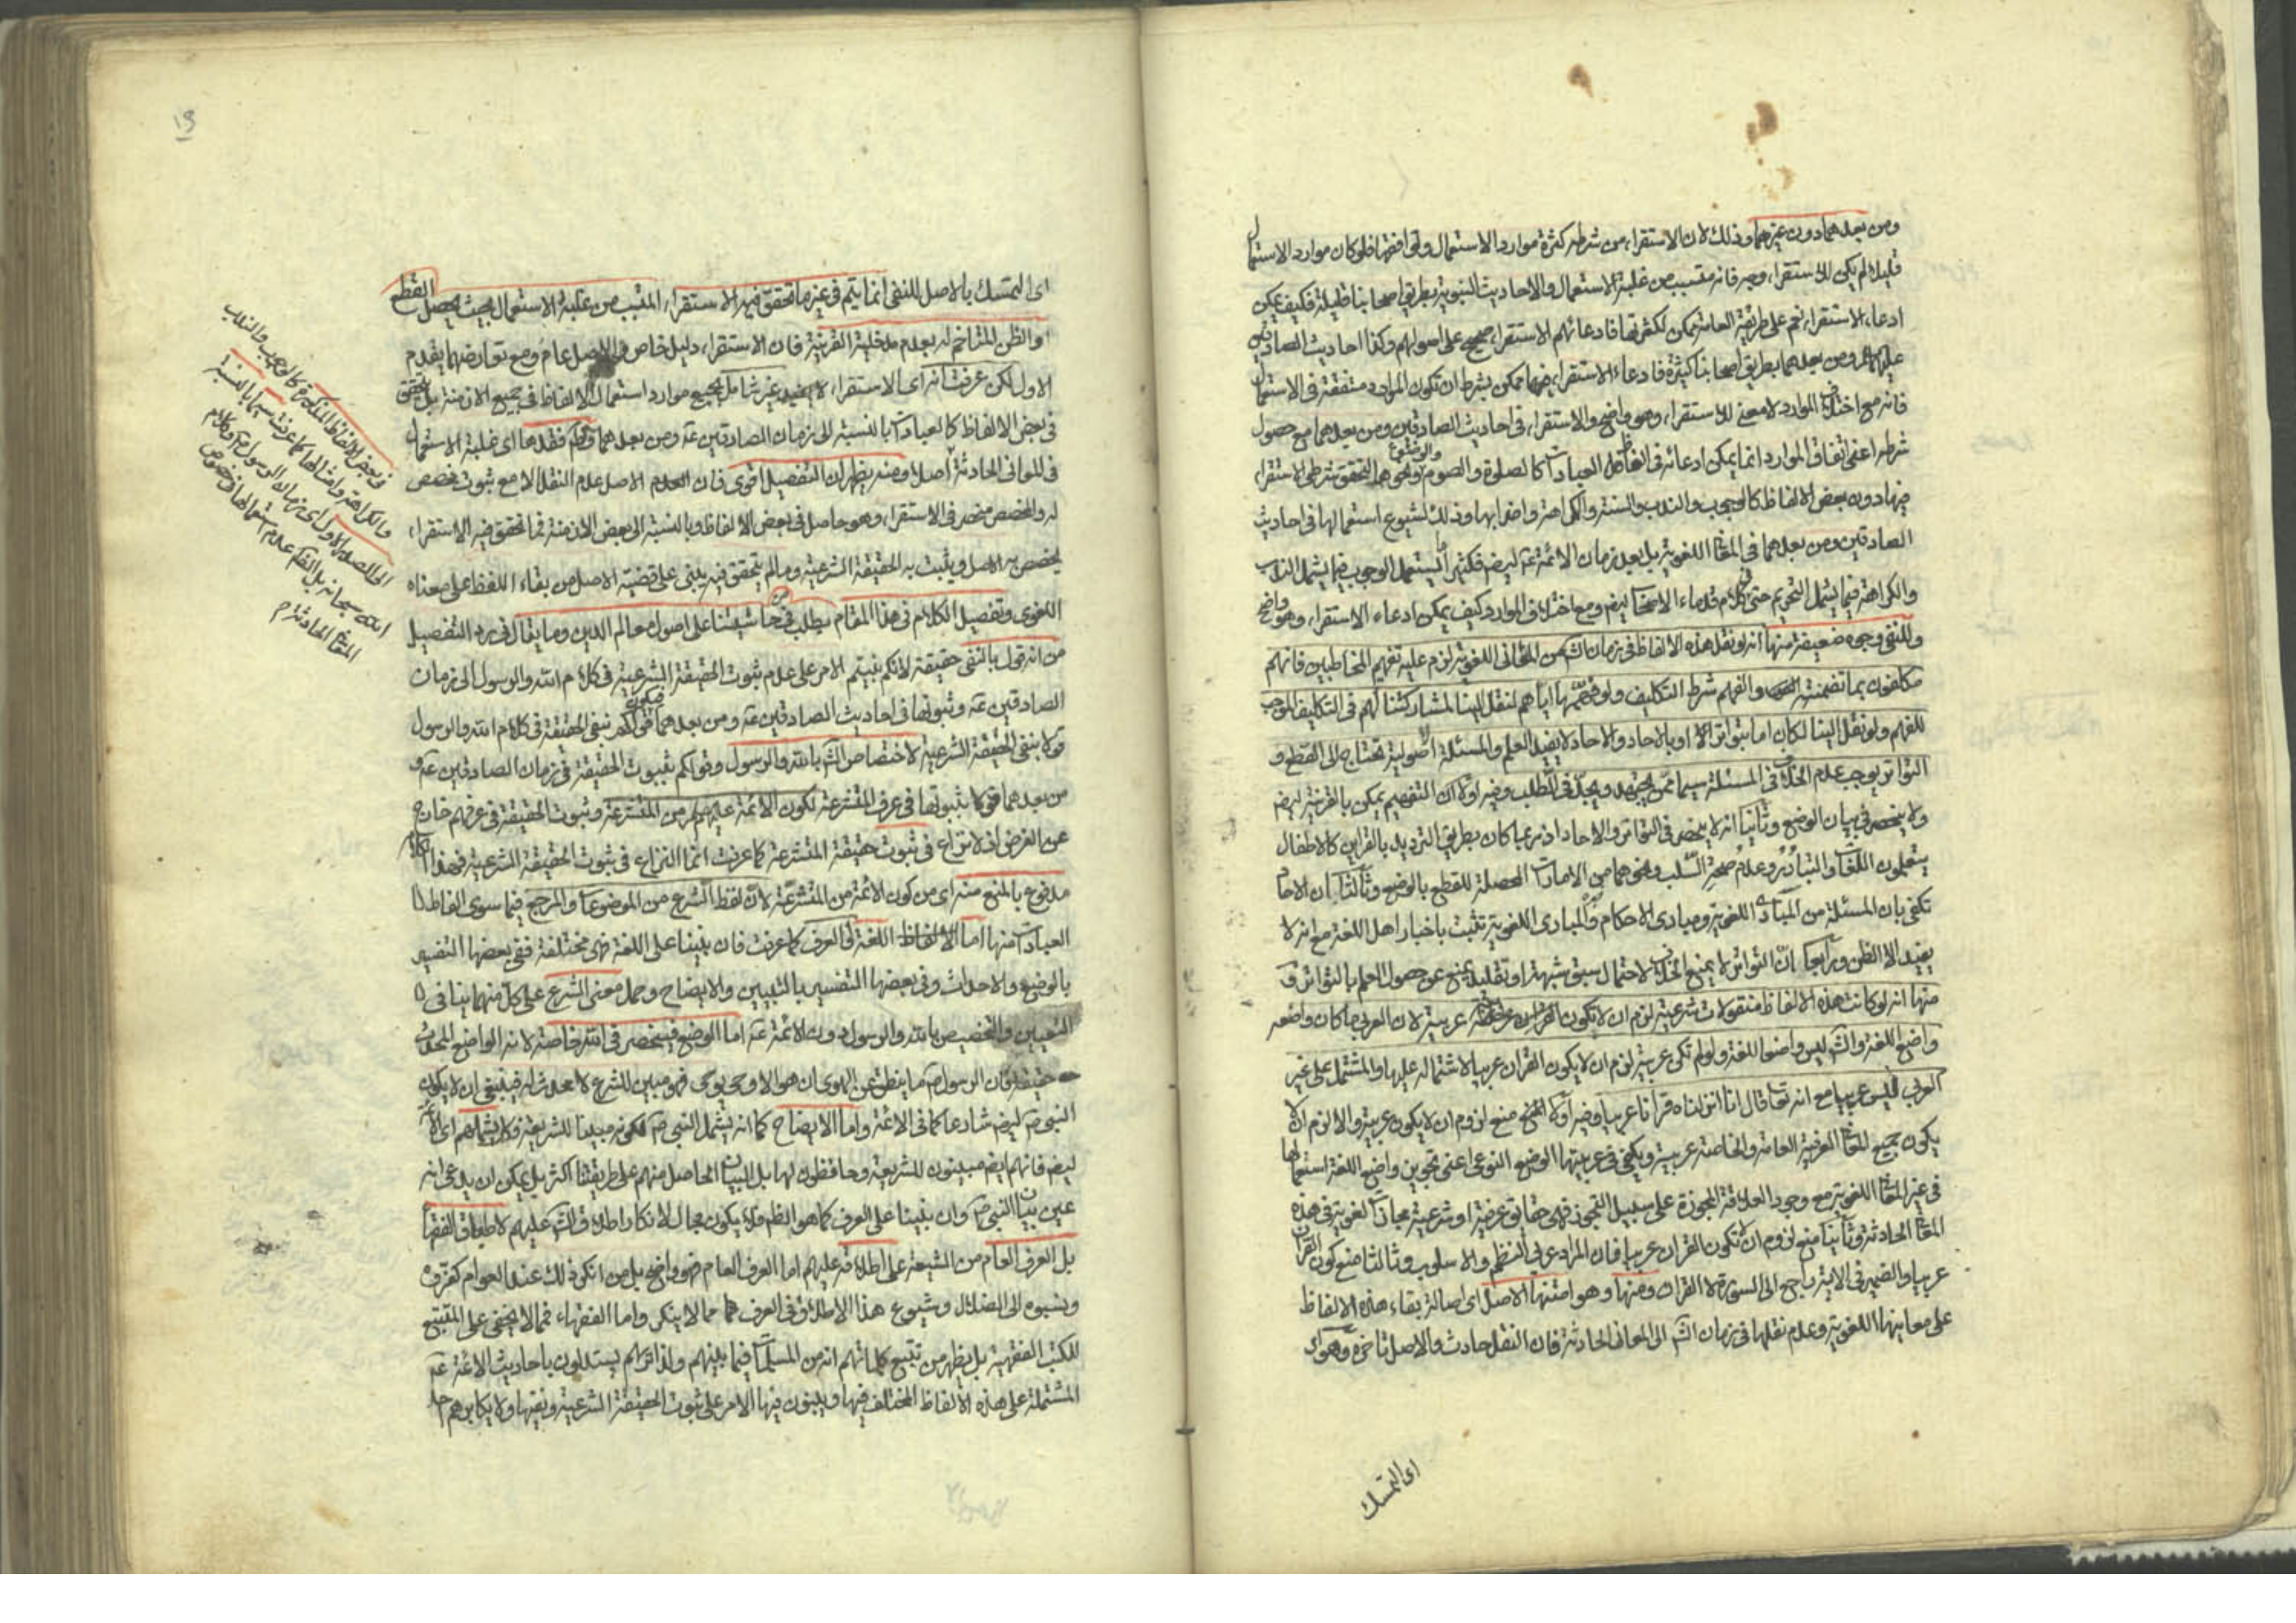 ومن بعدهما دون غيرهما وذلك لان الاستقراء من شرطه كثرة موارد الاستعمال وتوافقها فلو كان موارد الاستعمال
قليلة لم يكن للاستقراء وجه فانه متسبب من غلبة الاستعمال والاحاديث النبوية بطريق اصحابنا قليلة فكيف يمكن
ادعاء الاستقراء نعم على طريقة العامة يمكن لكثرتها فادعائهم الاستقراء صحيح على اصولهم وكذا احاديث الصادقين
عليهما ومن بعدهما بطريق اصحابنا كثيرة فادعاء الاستقراء فيها ممكن بشرط ان تكون الموارد متفقة فى الاستعمال
فانه مع اختلاف الموارد لا معنى للاستقراء وهو واضح والاستقراء فى احاديث الصادقين ومن بعدهما مع حصول
شرطه اعنى اتفاق الموارد انما يمكن ادعائه فى الفاظ العبادات كالصلوة والصوم والوضوء ونحوها لتحقق شرط الاستقراء
فيها دون بعض الالفاظ كالوجوب والندب والسنة والكراهة واضرابها وذلك لشيوع استعمالها فى احاديث
الصادقين ومن بعدهما فى المعانى اللغوية بل بعد زمان الائمة عه ايضا فكثيرا ما يستعمل الوجوب فيما يشمل الندب
والكراهة فيما يشمل التحريم حتى فى كلام قدماء الاصحاب ايضا ومع اختلاف الموارد كيف يمكن ادعاء الاستقراء وهو واضح
وللنفى وجوه ضعيفة منها انه لو نقل هذه الالفاظ فى زمان الش من المعانى اللغوية لزم عليه تفهيم المخاطبين فانهم
مكلفون بما تضمنته والفهم شرط التكليف ولو فهمها اياهم لنقل الينا لمشاركتنا لهم فى التكليف الموجب
للفهم ولو نقل الينا لكان اما بتواتر او بالاحاد والاحاد لا يفيد العلم والمسئلة اصولية تحتاج الى القطع و
التواتر يوجب عدم الخلاف فى المسئلة سيما ممن يجتهد ويجد فى الطلب وفيه اولا ان التفهيم يمكن بالقرينة ايضا
ولا ينحصر فى بيان الوضع وثانيا انه لا ينحصر فى التواتر والاحاد اذ ربما كان بطريق الترديد بالقراين كالاطفال
يتعلمون اللغات والتبادر وعدم صحة السلب ونحوهما من الامارات المحصلة للقطع بالوضع وثالثا ان الاحاد
تكفى بان المسئلة من المبادى اللغوية ومبادى الاحكام والمبادى اللغوية تثبت باخبار اهل اللغة مع انه لا
يفيد الا الظن ورابعا ان التواتر لا يمنع الخلاف لاحتمال سبق شبهة او تقليد يمنع عن حصول العلم بالتواتر و
منها انه لو كانت هذه الالفاظ منقولات شرعية لزم ان لا تكون عربية لان العربى ما كان واضعه
واضع اللغة والش ليس واضع اللغة ولو لم تكن عربية لزم ان لا يكون القران عربيا لاشتماله عليها والمشتمل على غير
العربى ليس عربيا مع انه تعا قال انا انزلناه قرانا عربيا وفيه اولا منع لزوم ان لا يكون عربية والا لزم ان لا
يكون جميع المعانى العرفية العامة والخاصة عربية ويكفى فى عربيتها الوضع النوعى اعنى تجويز واضع اللغة استعمالها
فى غير المعانى اللغوية مع وجود العلاقة المجوزة على سبيل التجوز فهى حقايق عرفية او شرعية مجازات لغوية فى هذه
المعانى الحادثة وثانيا منع لزوم ان لا تكون القران عربيا فان المراد عربى النظم والاسلوب وثالثا منع كون القران
عربيا والضمير فى الاية راجع الى السورة لا القران ومنها وهو امتنها الاصل اى اصالة بقاء هذه الالفاظ
على معانيها اللغوية وعدم نقلها فى زمان الش الى المعانى الحادثة فان النقل حادث والاصل تاخره وهو اى
اى التمسك
١٩
اى التمسك بالاصل للنفى انما يتم فى غير ما تحقق فيه الاستقراء المتسبب من غلبة الاستعمال بحيث يحصل القطع
والظن المتاخم له بعدم مدخلية القرينة فان الاستقراء دليل خاص والاصل عام ومع تعارضهما يقدم
الاول لكن عرفت انه اى الاستقراء غير شامل لجميع موارد استعمال الالفاظ فى جميع الازمنة بل يتحقق
فى بعض الالفاظ كالعبادات بالنسبة الى زمان الصادقين عه ومن بعدهما فقدها اى غلبة الاستعمال
فى المعانى الحادثة اصلا ومنه يظهر ان التفصيل اقوى فان الاصل عدم النقل الا مع ثبوت مخصص
له والمخصص منحصر فى الاستقراء وهو حاصل فى بعض الالفاظ وبالنسبة الى بعض الازمنة فما تحقق فيه الاستقراء
يخصص به الاصل ويثبت به الحقيقة الشرعية وما لم يتحقق فيه يبنى على قضية الاصل من بقاء اللفظ على معناه
اللغوى وتفصيل الكلام فى هذا المقام يطلب من حاشيتنا على اصول معالم الدين وما يقال فى رد التفصيل
من انه قول بالنفى حقيقة لانكم بنيتم الامر على عدم ثبوت الحقيقة الشرعية فى كلام الله والرسول الى زمان
الصادقين عه وثبوتها فى احاديث الصادقين عه ومن بعدهما فيكون قولكم بنفى الحقيقة فى كلام الله والرسول
قولا بنفى الحقيقة الشرعية لاختصاص الش بالله والرسول وقولكم بثبوت الحقيقة فى زمان الصادقين عه و
من بعدهما قولا بثبوتها فى عرف المتشرعة لكون الائمة عليهم من المتشرعة وثبوت الحقيقة فى عرفهم خارج
عن الغرض اذ لا نزاع فى ثبوت حقيقة المتشرعة كما عرفت انما النزاع فى ثبوت الحقيقة الشرعية فهذا
مدفوع بالمنع منه اى من كون الائمة من المتشرعة لان لفظ الشرع من الموضوعات والمرجع فيما سوى الفاظ
العبادات منها اما اللغة او العرف كما عرفت فان بنينا على اللغة فهى مختلفة ففى بعضها التفسير
بالوضع والاحداث وفى بعضها التفسير بالتبيين والايضاح وحمل معنى الشرع على كل منهما ينافى
التعيين والتخصيص بالله والرسول دون الائمة عه اما الوضع فينحصر فى الله خاصة لانه الواضع المحدث
حقيقة فان الرسول ص ما ينطق عن الهوى ان هو الا وحى يوحى فهو مبين للشرع لا محدث له فينبغى ان لا يكون
النبى ص ايضا شارعا كما فى الائمة واما الايضاح كما انه يشمل النبى ص لكونه مبينا للشريعة فكذا يشملهم اى الائمة
ايضا فانهم ايضا مبينون للشريعة وحافظون لها بل البيان الحاصل منهم على طريقتنا اكثر بل يمكن ان يدعى انه
عين بيان النبى ص وان بنينا على العرف كما هو الظاهر فلا يكون مجال لانكار اطلاق الش عليهم لاطباق الفقهاء
بل العرف العام من الشيعة على اطلاقه عليهم اما العرف العام فهو واضح بل من انكر ذلك عند العوام كفروه
وينسبوه الى الضلال وشيوع هذا الاطلاق فى العرف مما لا ينكر واما الفقهاء فمما لا يخفى على المتتبع
للكتب الفقهية بل يظهر من تتبع كلماتهم انه من المسلمات فيما بينهم ولذا تراهم يستدلون باحاديث الائمة عه
المشتملة على هذه الالفاظ المختلف فيها ويبنون فيها الامر على ثبوت الحقيقة الشرعية ونفيها ولا يكابرهم احد
فى بعض الالفاظ المذكورة كالوجوب والندب
والكراهة وامثالها كما عرفت سيما بالنسبة
الى الصدر الاول اى زمان الرسول ص وكلام
الله سبحانه بل الظاهر عدم استعمالها فى خصوص
المعانى الحادثة